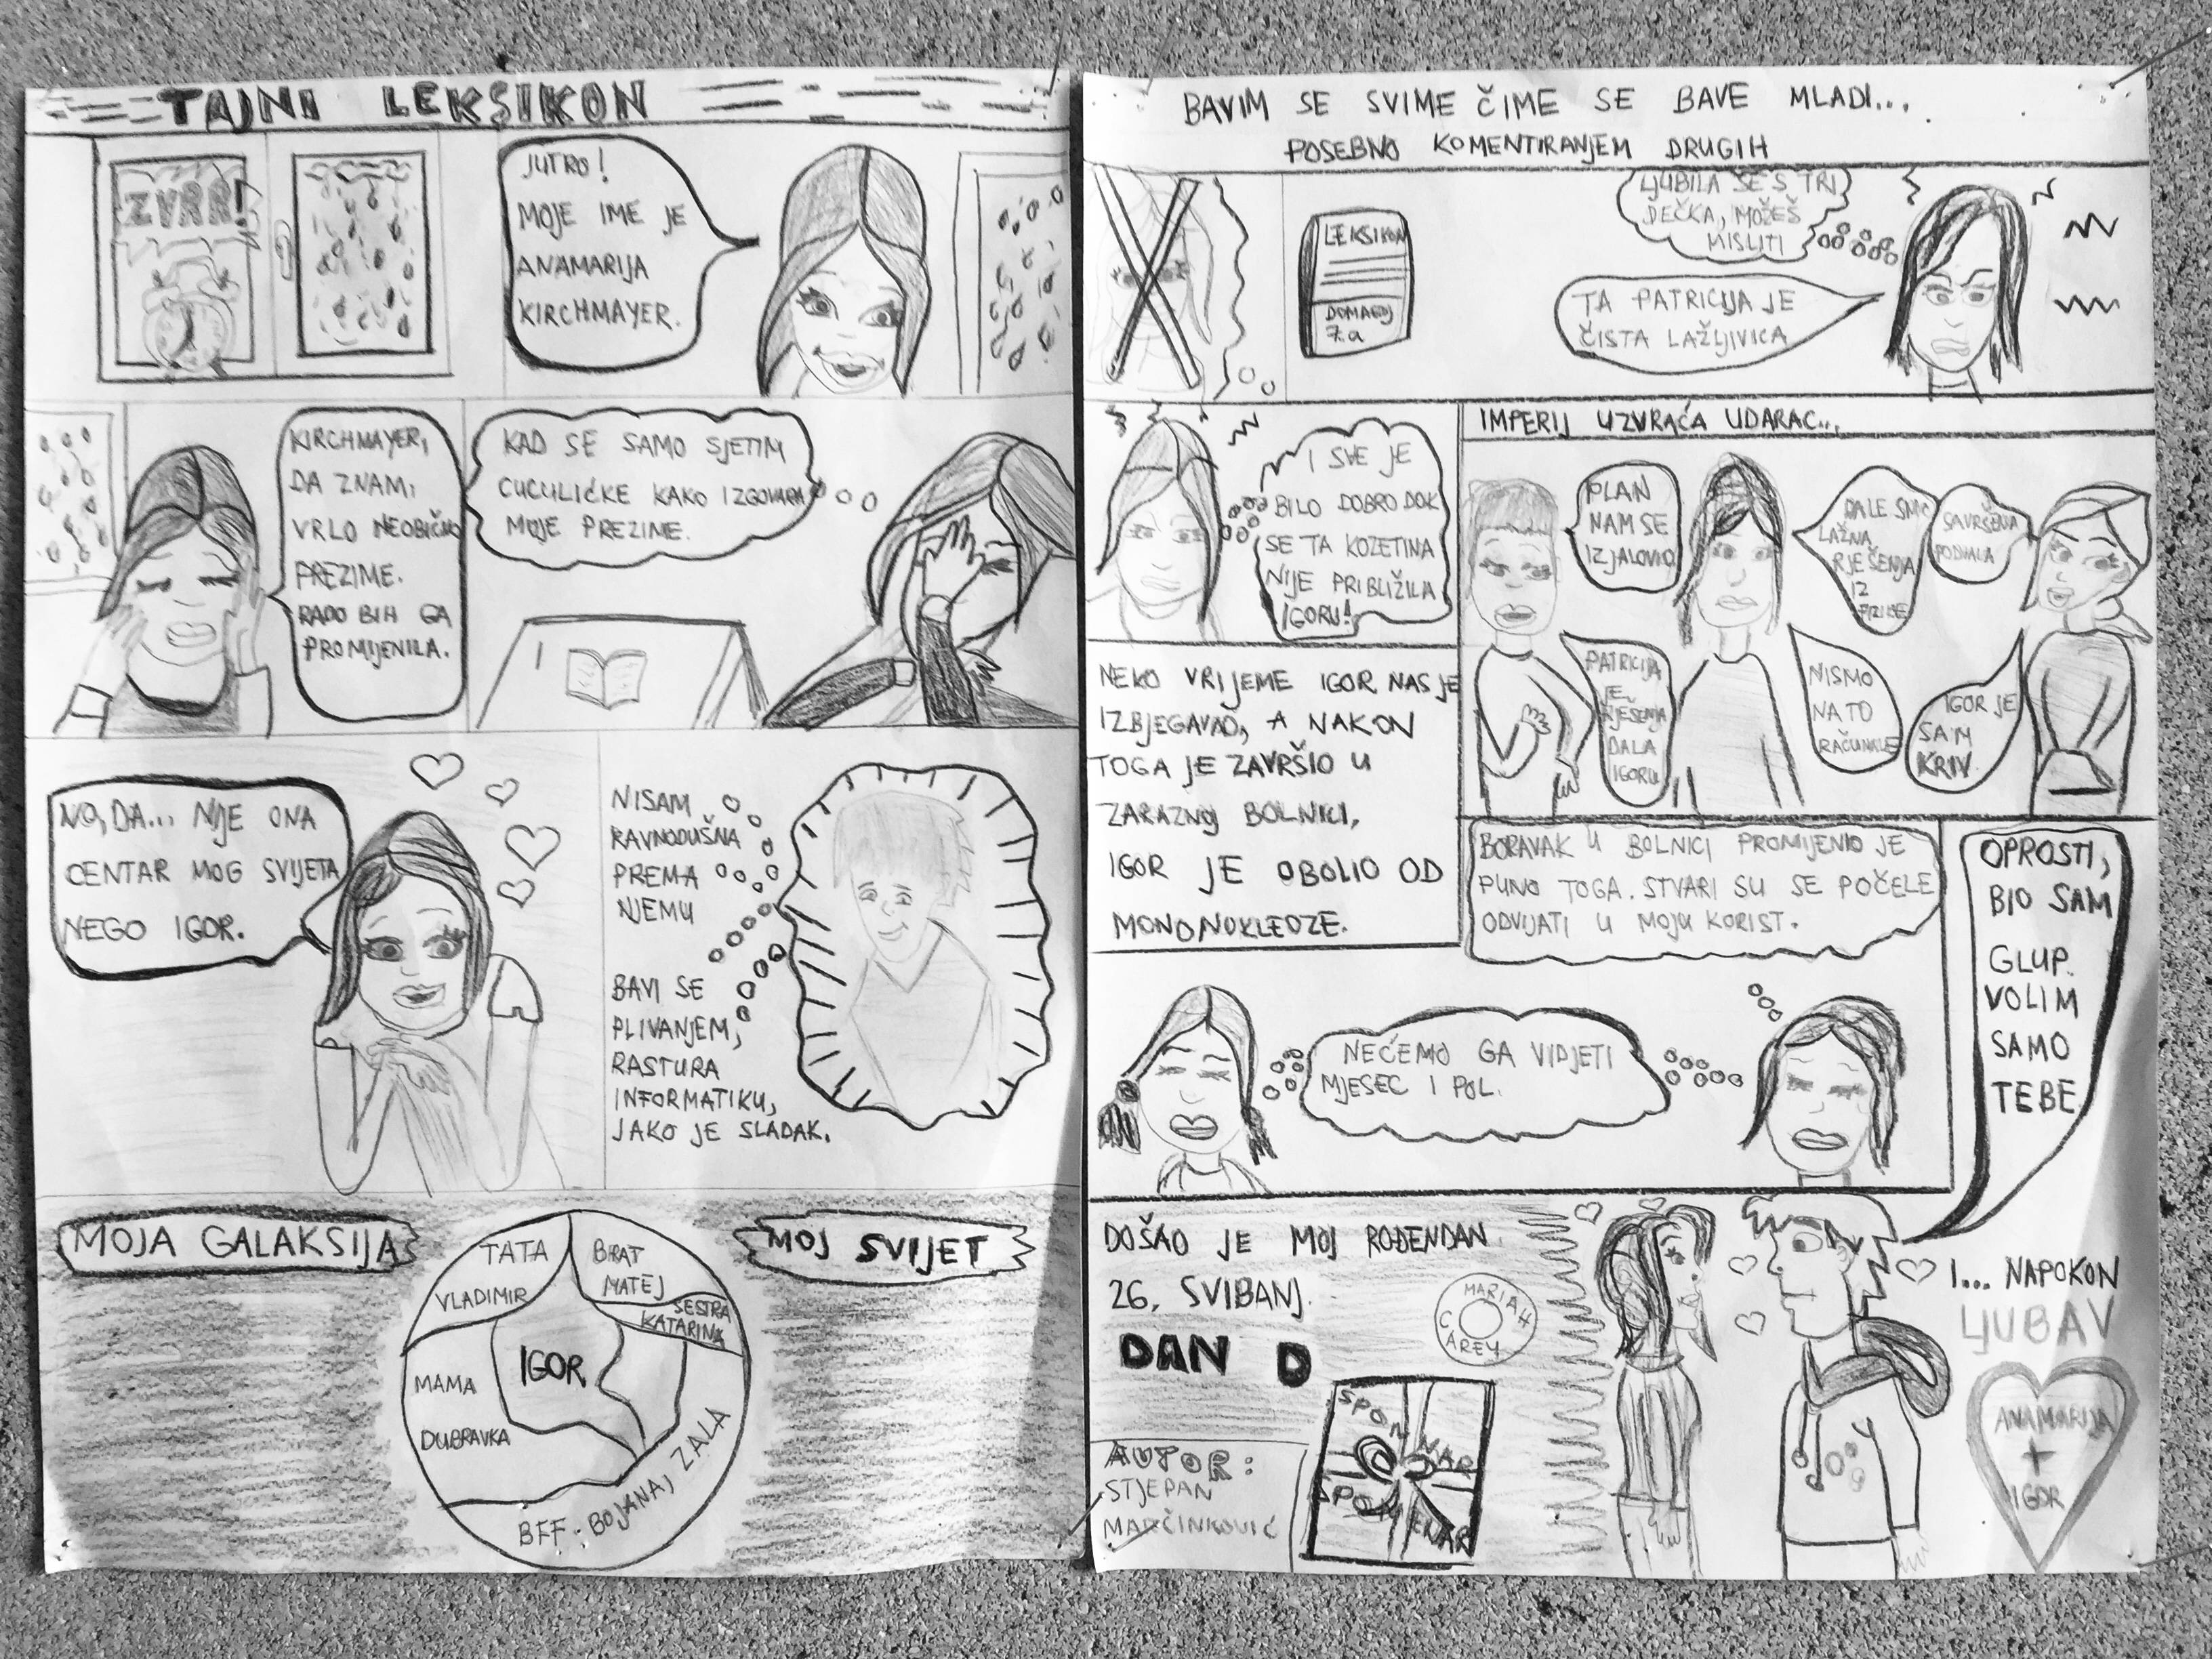 TAJNI LEKSIKON
ZVRR!
JUTRO!
MOJE IME JE
ANAMARIJA
KIRCHMAYER.
KIRCHMAYER,
DA ZNAM,
VRLO NEOBIČNO
PREZIME.
RADO BIH GA
PROMIJENILA.
KAD SE SAMO SJETIM
CUCULIĆKE KAKO IZGOVARA
MOJE PREZIME.
NO, DA... NIJE ONA
CENTAR MOG SVIJETA
NEGO IGOR.
NISAM
RAVNODUŠNA
PREMA
NJEMU
BAVI SE
PLIVANJEM,
RASTURA
INFORMATIKU,
JAKO JE SLADAK.
MOJA GALAKSIJA
MOJ SVIJET
TATA
VLADIMIR
BRAT
MATEJ
SESTRA
KATARINA
IGOR
MAMA
DUBRAVKA
BFF: BOJANA, ZALA
BAVIM SE SVIME ČIME SE BAVE MLADI...
POSEBNO KOMENTIRANJEM DRUGIH
LEKSIKON
DOMAGOJ
7.a
LJUBILA SE S TRI
DEČKA, MOŽEŠ
MISLITI
TA PATRICIJA JE
ČISTA LAŽLJIVICA
I SVE JE
BILO DOBRO DOK
SE TA KOZETINA
NIJE PRIBLIŽILA
IGORU!
IMPERIJ UZVRAĆA UDARAC...
PLAN
NAM SE
IZJALOVIO
DALE SMO
LAŽNA
RJEŠENJA
IZ
SAVRŠENA
PODVALA
PATRICIJA
JE
RJEŠENJA
DALA
IGORU
NISMO
NA TO
RAČUNALE
IGOR JE
SAM
KRIV.
NEKO VRIJEME IGOR NAS JE
IZBJEGAVAO, A NAKON
TOGA JE ZAVRŠIO U
ZARAZNOJ BOLNICI,
IGOR JE OBOLIO OD
MONONUKLEOZE.
BORAVAK U BOLNICI PROMIJENIO JE
PUNO TOGA. STVARI SU SE POČELE
ODVIJATI U MOJU KORIST.
NEĆEMO GA VIDJETI
MJESEC I POL.
OPROSTI,
BIO SAM
GLUP.
VOLIM
SAMO
TEBE
DOŠAO JE MOJ ROĐENDAN
26. SVIBANJ.
DAN D
MARIAH
CAREY
SPOMENAR
I... NAPOKON
LJUBAV
ANAMARIJA
+
IGOR
AUTOR:
STJEPAN
MARČINKOVIĆ